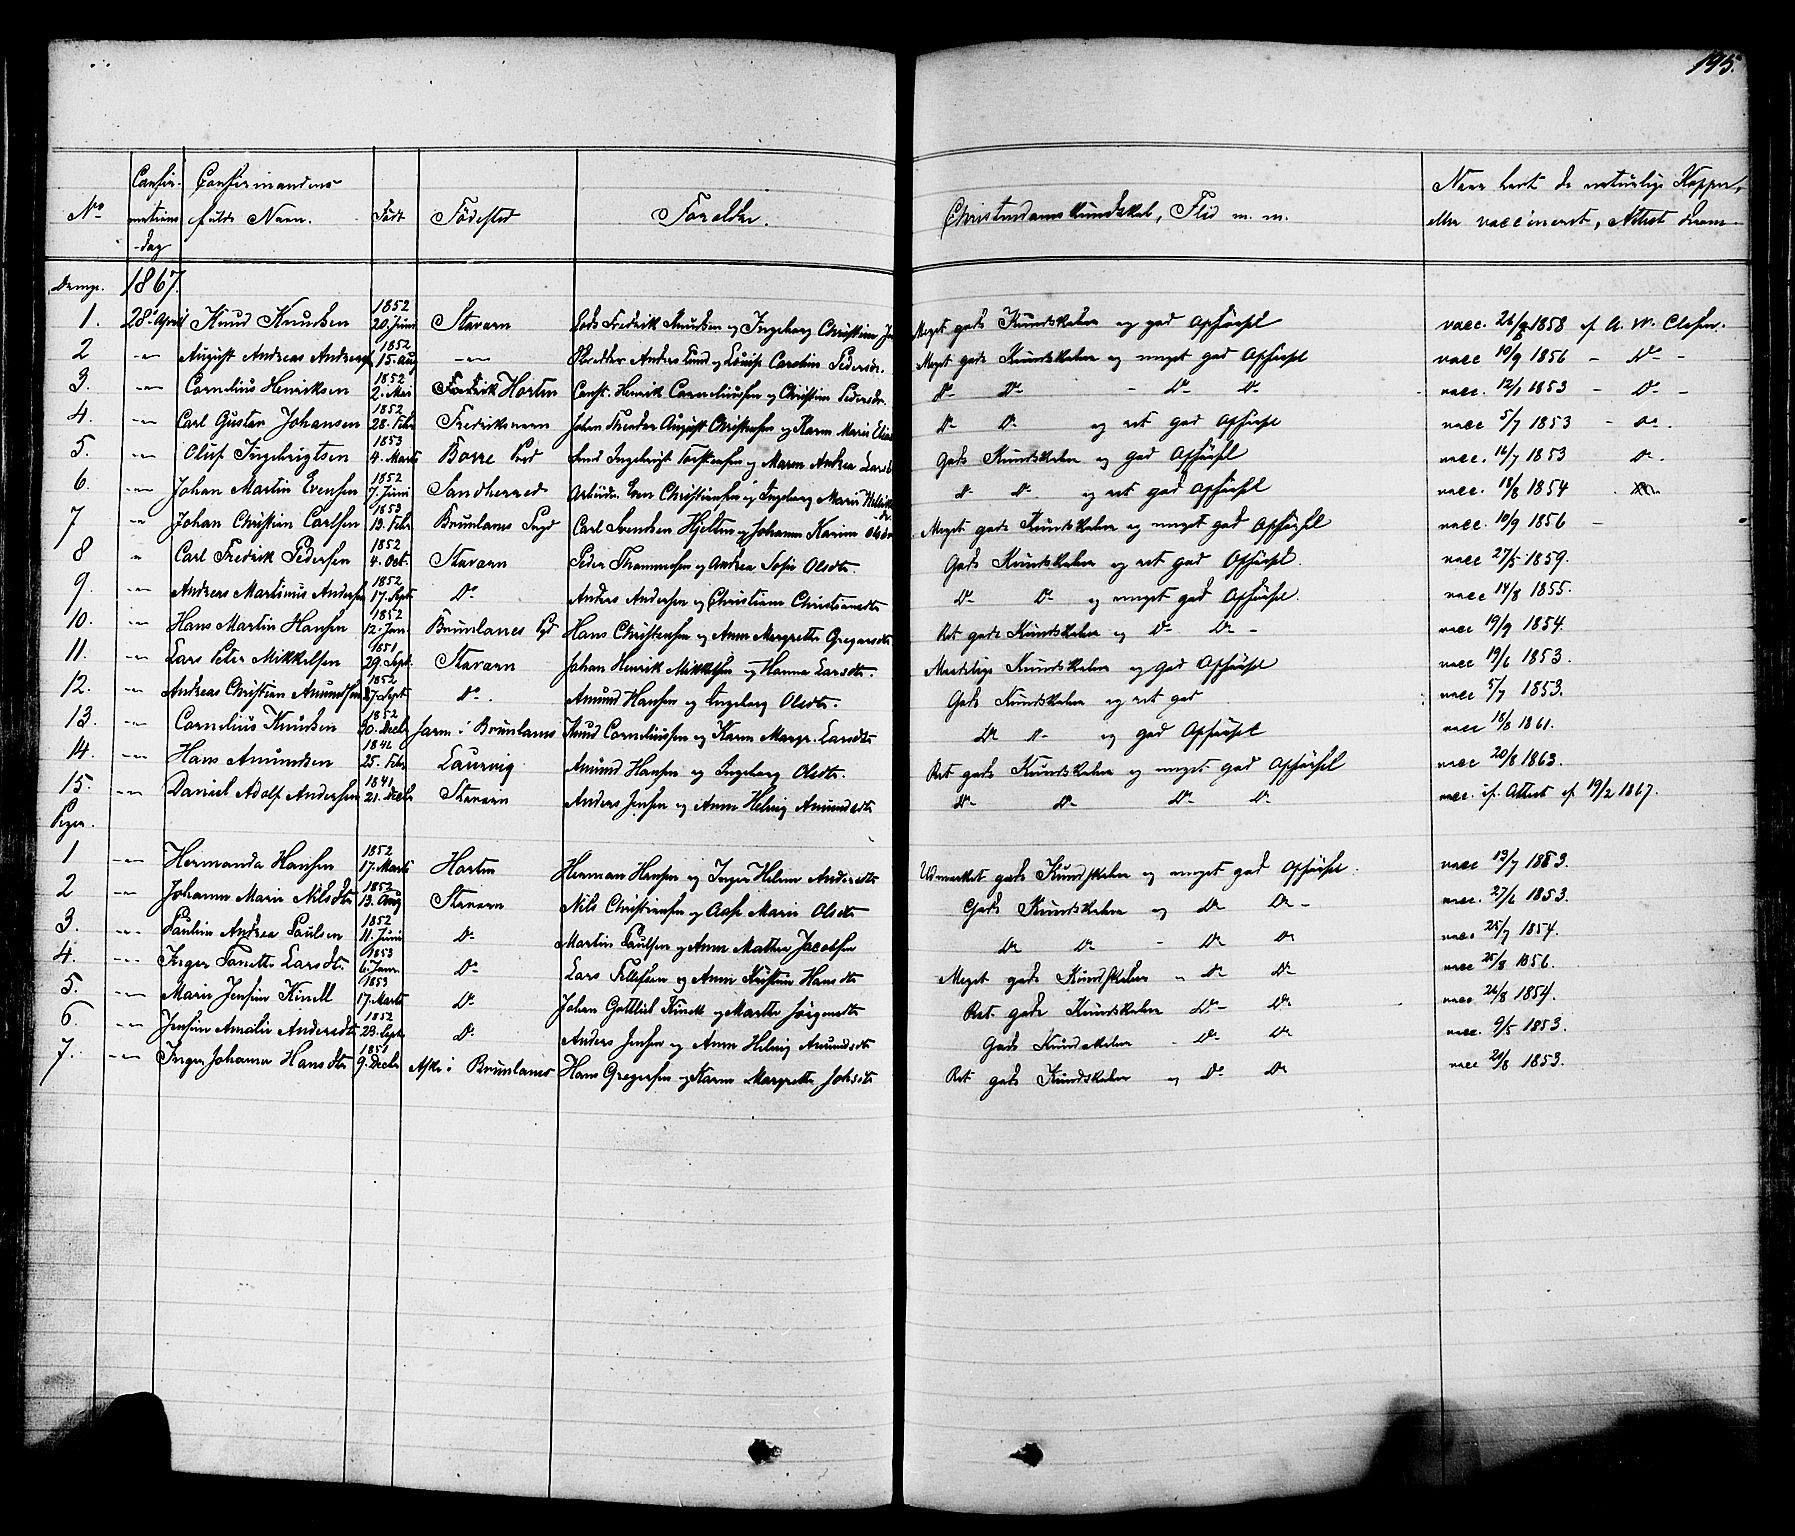 195.
No
Confir-
mations
-dag
Confirmandens
fulde Navn.
Født
Fødested
Forældre.
Christendomskundskab, Flid m. m.
Naar havt de naturlige Kopper,
eller vaccineret, Attest derom
Drenge. 1867.
1. 28. April Knud Knudsen 1852 20. Juni Stavern Fredrik Knudsen og Ingeborg Christine Meget gode Kundskaber og god Opførsel vacc. 26/8 1858 af A. W. Clasen.
2 -"- August Andreas Anders 1852 15. Aug -"- Anders Lund og Lovise Caroline Pedersdr. Meget gode Kundskaber og meget god Opførsel vacc 10/9 1856 - Do -
3. -"- Cornelius Henriksen 1852 2. Mai Henrik Corneliussen og Christine Pedersdr. Do Do - Do Do vacc. 12/1 1853 - Do -
4. -"- Carl Gustav Johansen 1852 28. Febr Fredriksværn Johan Theodor August Christensen og Karen Marie Do Do og ret god Opførsel vacc 5/7 1853 - Do.
5. -"- Oluf Ingebrigtsen 1853 4. Marts Borre Ingebrigt og Maren Andrea Lars Gode Kundskaber og god Opførsel vacc. 16/7 1853 Do.
6. -"- Johan Martin Evensen 1852 7. Juni Sandherred Arbeidm. Even Christiansen og Ingeborg Marie Do Do og ret god Opførsel vacc. 18/8 1854
7 -"- Johan Christian Carlsen 1853 13. Febr Brunlanes Carl Svendsen Hjelten og Johanne Karine Ols Meget gode Kundskaber og meget god Opførsel vacc 10/9 1856 -
8 " Carl Fredrik Pedersen 1852 4. Oct. Stavern Peder Thommesen og Andrea Sofie Olsdtr. Gode Kundskaber og ret god Opførsel. vacc. 27/5 1859.
9. -"- Andreas Martinius Andersen 1852 17. Sept Do Anders Andersen og Christiane Christiansdtr Do Do og meget god Opførsel. vacc 14/8 1855.
10. -"- Hans Martin Hansen 1852 12. Jan. Brunlanes Hans Christensen og Anne Margrethe Gregersdtr Ret gode Kundskaber og Do Do - vacc 19/9 1854.
11. -"- Lars Peter Mikkelsen 1851 29. Sept. Stavern Johan Henrik Mikkelsen og Hanna Larsdtr. Maadelige Kundskaber og god Opførsel vacc 19/6 1853.
12. -"- Andreas Christian Amundsen 1852 27. Sept Do. Amund Hansen og Ingeborg Olsdtr. Gode Kundskaber og ret god vacc 5/7 1853.
13. -"- Cornelius Knudsen 1852 30. Decbr i Brunlanes Knud Corneliussen og Karen Margr. Larsdtr Do Do og god Opførsel vacc 18/8 1861.
14. -"- Hans Amundsen 25. Febr Laurvig Amund Hansen og Ingeborg Olsdtr. Ret gode Kundskaber og meget god Opførsel vacc 20/8 1863.
15. -"- Daniel Adolf Andersen 21. Decbr Stavern Anders Jensen og Anne Helvig Amundsdtr Do Do Do Do vacc. if. Attest af 19/2 1867.
Piger.
1 -"- Hermanda Hansen 1852 17. Marts Horten Herman Hansen og Inger Helene Andersdtr Udmærket gode Kundskaber og meget god Opførsel. vacc 13/7 1853.
2 -"- Johanne Marie Nilsdtr 1852 13. Aug Stavern Nils Christiansen og Aase Marie Olsdtr Gode Kundskaber og Do Do - vacc. 27/6 1853.
3. -"- Pauline Andrea Paulsen 1852 11. Juni Do Martin Paulsen og Anne Mathea Jacobsen Do Do - Do Do vacc 25/7 1854.
4. -"- Inger Tonette Larsdtr 1853 6. Janr. Do Lars Tellefsen og Anne Kristine Hansdtr Meget gode Kundskaber " Do Do vacc 25/8 1856.
5. -"- Marie Jensine Kinell 1853 17. Marts Do Johan Gottlieb Kinell og Marthe Jørgensdtr Ret gode Kundskaber Do - Do vacc. 26/8 1854.
6. -"- Jensine Amalie Andersdtr 1852 23. Sept Do Anders Jensen og Anne Helvig Amundsdtr Gode Kundskaber - Do Do vacc. 9/5 1853.
7. -"- Inger Johanne Hansdtr 1851 9. Decbr Aske i Brunlanes Hans Gregersen og Karen Margrethe Johsdtr Ret gode Kundskaber og Do Do vacc 21/8 1853.